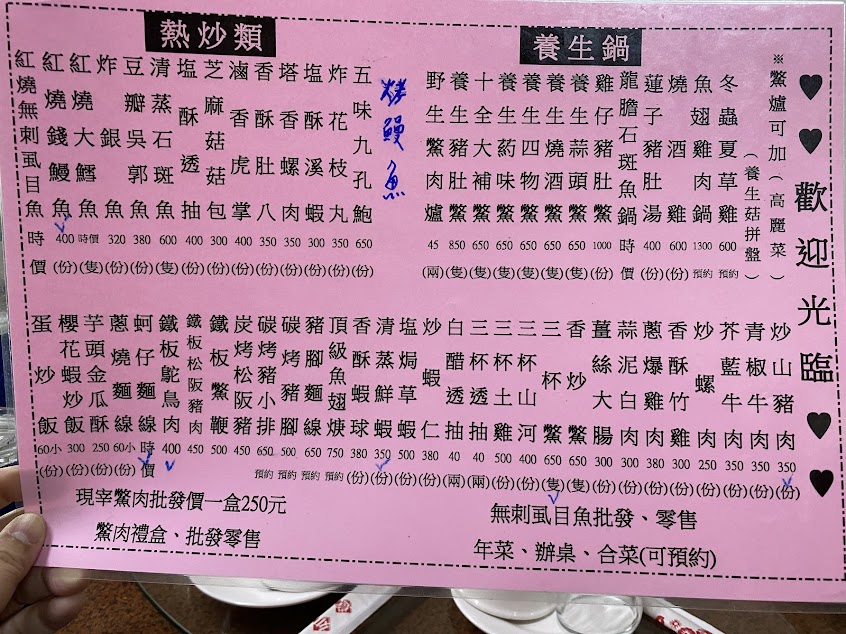 歡迎光臨
※鱉爐可加(高麗菜)
(養生菇拼盤)
養生鍋
冬蟲夏草雞 600 預約
魚翅雞肉鍋 1300 預約
燒酒雞 600 (份)
蓮子豬肚湯 400 (份)
龍膽石斑魚鍋 時價
雞仔豬肚鱉 1000 (份)
養生蒜頭鱉 650 (隻)
養生燒酒鱉 650 (隻)
養生四物鱉 650 (隻)
養生葯味鱉 650 (隻)
十全大補鱉 650 (隻)
養生豬肚鱉 850 (隻)
野生鱉肉爐 45 (兩)
烤鰻魚
熱炒類
五味九孔鮑 650 (份)
炸花枝丸 350 (份)
塩酥溪蝦 300 (份)
塔香螺肉 350 (份)
香酥肚八 350 (份)
滷香虎掌 400 (份)
芝麻菇菇包 300 (份)
塩酥透抽 400 (份)
清蒸石斑魚 600 (隻)
豆瓣吳郭魚 380 (份)
炸銀魚 320 (份)
紅燒大鱈魚 時價 (隻)
紅燒錢鰻魚 400 (份)
紅燒無刺虱目魚 時價
炒山豬肉 350 (份)
青椒牛肉 350 (份)
芥藍牛肉 350 (份)
炒螺肉 250 (份)
香酥竹雞 300 (份)
蔥爆雞肉 380 (份)
蒜泥白肉 300 (份)
薑絲大腸 300 (份)
香炒鱉 650 (隻)
三杯鱉 650 (隻)
三杯山河 400 (份)
三杯土雞 500 (份)
三杯透抽 40 (兩)
白醋透抽 40 (兩)
炒蝦仁 380 (份)
塩焗草蝦 500 (份)
清蒸鮮蝦 350 (份)
香酥蝦球 380 (份)
頂級魚翅焿 750 預約
豬腳麵線 650 預約
碳烤豬腳 500 預約
碳烤豬小排 650 預約
炭烤松阪豬 450
鐵板鱉鞭 500
鐵板松阪豬肉 450
鐵板鴕鳥肉 400
蚵仔麵線 時價
蔥燒麵線 60小 (份)
芋頭金瓜酥 250 (份)
櫻花蝦炒飯 300 (份)
蛋炒飯 60小 (份)
現宰鱉肉批發價一盒250元
鱉肉禮盒、批發零售
無刺虱目魚批發、零售
年菜、辦桌、合菜(可預約)